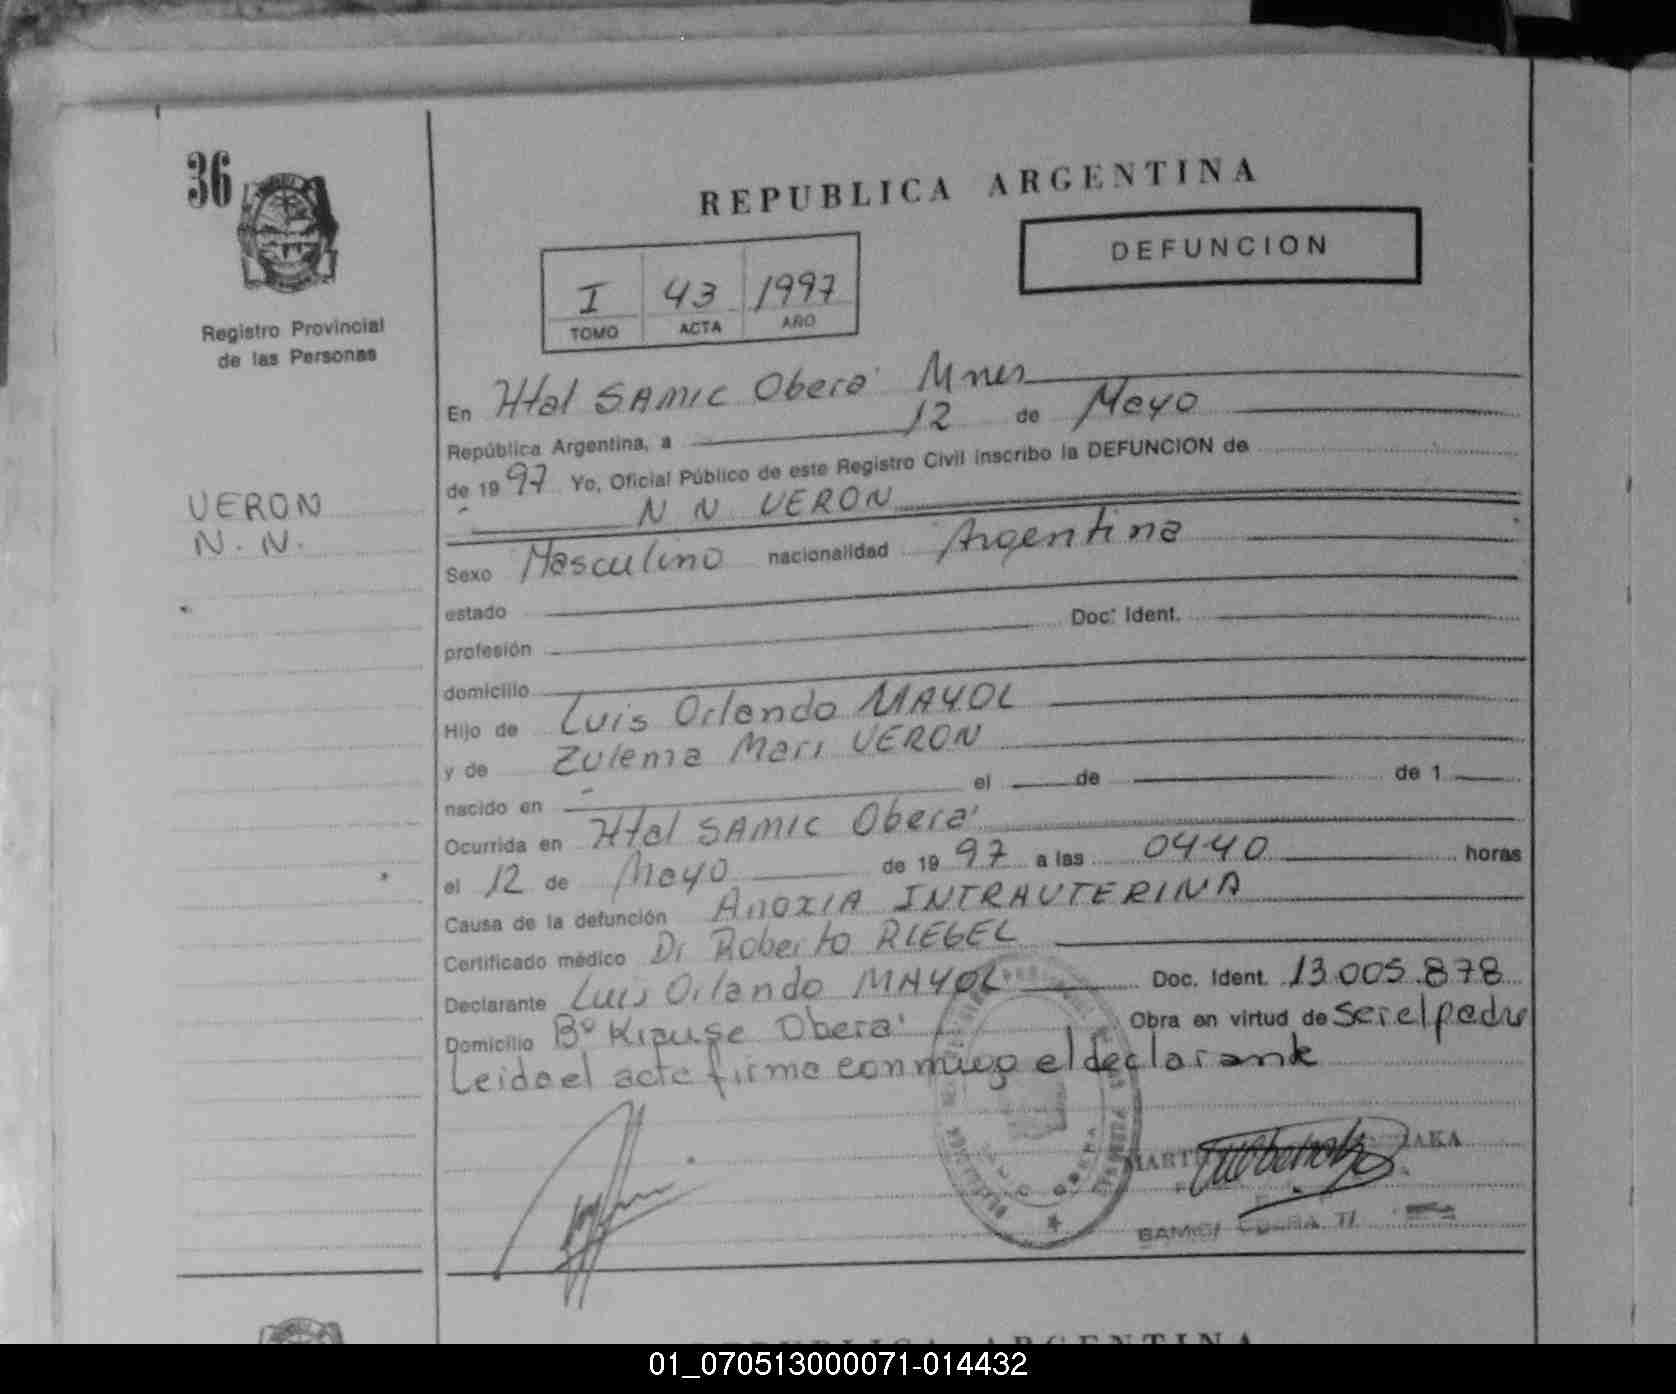 36
Registro Provincial
de las Personas
VERON
N. N.
REPUBLICA ARGENTINA
DEFUNCION
I 43 1997
TOMO ACTA AÑO
En Htal SAMIC Oberá Mnes
República Argentina, a 12 de Mayo
de 1997 Yo, Oficial Público de este Registro Civil inscribo la DEFUNCION de
N N VERON
Sexo Masculino nacionalidad Argentina
estado
profesión Doc. Ident.
domicilio
Hijo de Luis Orlando MAYOL
y de Zulema Mari VERON
nacido en el de de 1
Ocurrida en Htal SAMIC Oberá
el 12 de Mayo de 1997 a las 0440 horas
Causa de la defunción ANOXIA INTRAUTERINA
Certificado médico Dr Roberto RIEGEL
Declarante Luis Orlando MAYOL Doc. Ident. 13.005.878
Domicilio Bº Krause Oberá Obra en virtud de ser el padre
Leida el acta firma conmigo el declarante
OBERA
REPUBLICA ARGENTINA
01_070513000071-014432